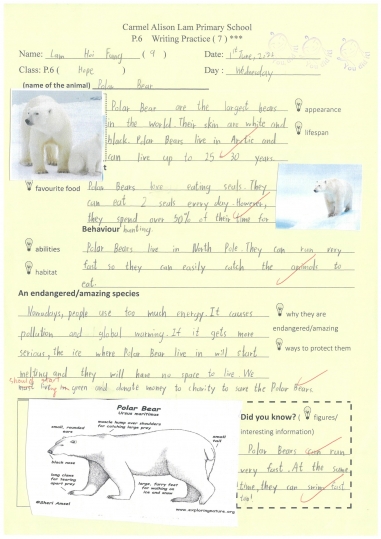 Carmel Alison Lam Primary School
P.6 Writing Practice ( 7 ) ***
Name: Lam Hoi Fung ( 9 ) Date: 1st June, 2022
Class: P.6 ( Hope ) Day : Wednesday
(name of the animal) Polar Bear
Polar Bear are the largest bears
in the world. Their skin are white and
black. Polar Bears live in Arctic and
can live up to 25 - 30 years.
appearance
lifespan
favourite food
Polar Bears love eating seals. They
can eat 2 seals every day. However,
they spend over 50% of their time for
Behaviour hunting.
abilities
habitat
Polar Bears live in North Pole. They can run very
fast so they can easily catch the animals to
eat.
An endangered/amazing species
Nowadays, people use too much energy. It causes
pollution and global warming. If it gets more
serious, the ice where Polar Bear live in will start
melting and they will have no space to live. We
should
more living green and donate money to charity to save the Polar Bears.
why they are
endangered/amazing
ways to protect them
Polar Bear
Ursus maritimus
small, rounded
ears
muscle hump over shoulders
for catching large prey
small
tail
black nose
long claws
for tearing
apart prey
large, furry feet
for walking on
ice and snow
©Sheri Amsel
www.exploringnature.org
Did you know? ( figures/
interesting information)
Polar Bears can run
very fast. At the same
time, they can swim fast
too!